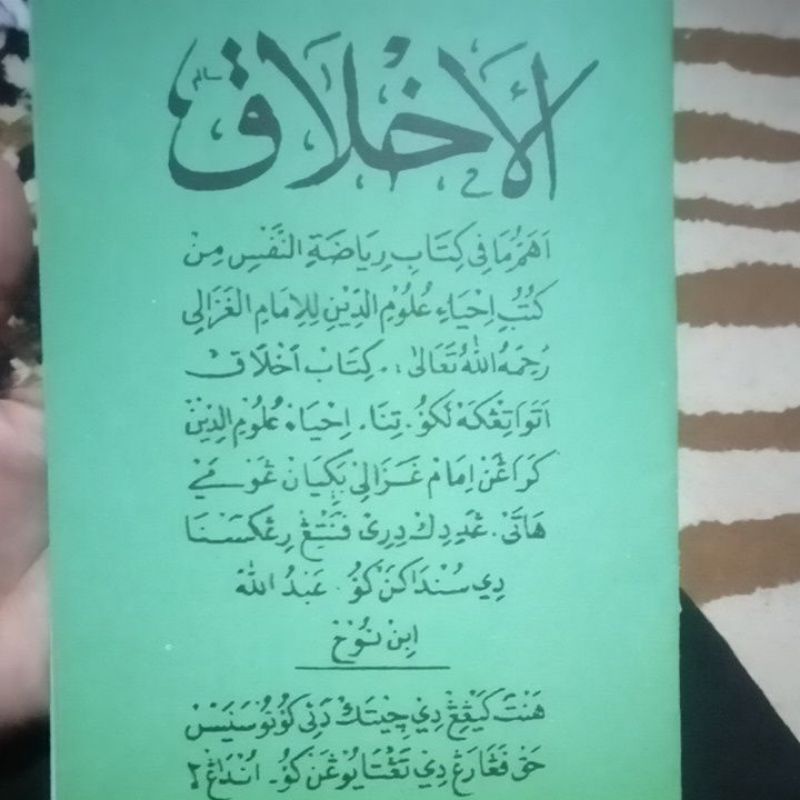 الأَخْلَاق
اَهَمُّ مَا فِى كِتَابِ رِيَاضَةِ النَّفْسِ مِنْ
كُتُبِ اِحْيَاءِ عُلُوْمِ الدِّيْنِ لِلْاِمَامِ الْغَزَالِى
رَحِمَهُ اللهُ تَعَالَى :. كِتَابْ اَخْلَاقْ
اَتَوَا تِڠْكَهْ لَكُوْ. تِنَا. اِحْيَاءْ عُلُوْمِ الدِّيْنْ
كَرَاڠَنْ اِمَامْ غَزَالِى بَڮِيَانْ
هَاتَىْ. ڠَدِدِكْ دِرِىْ فَنْتِڠْ رِڠْكَسْنَا
دِي سُنْدَاكَنْ كُوْ. عَبْدُ اللهْ
اِبِنْ نُوْحْ
هَنْتَ كَيْڠِڠْ دِي چِيْتَكْ دَيْ كُوْ نُوْ سَنَيْسْ
حَقْ فَڠَارَڠْ دِي تَڠْتَايُوْڠَنْ كُوْ. اُنْدَاڠْ٢